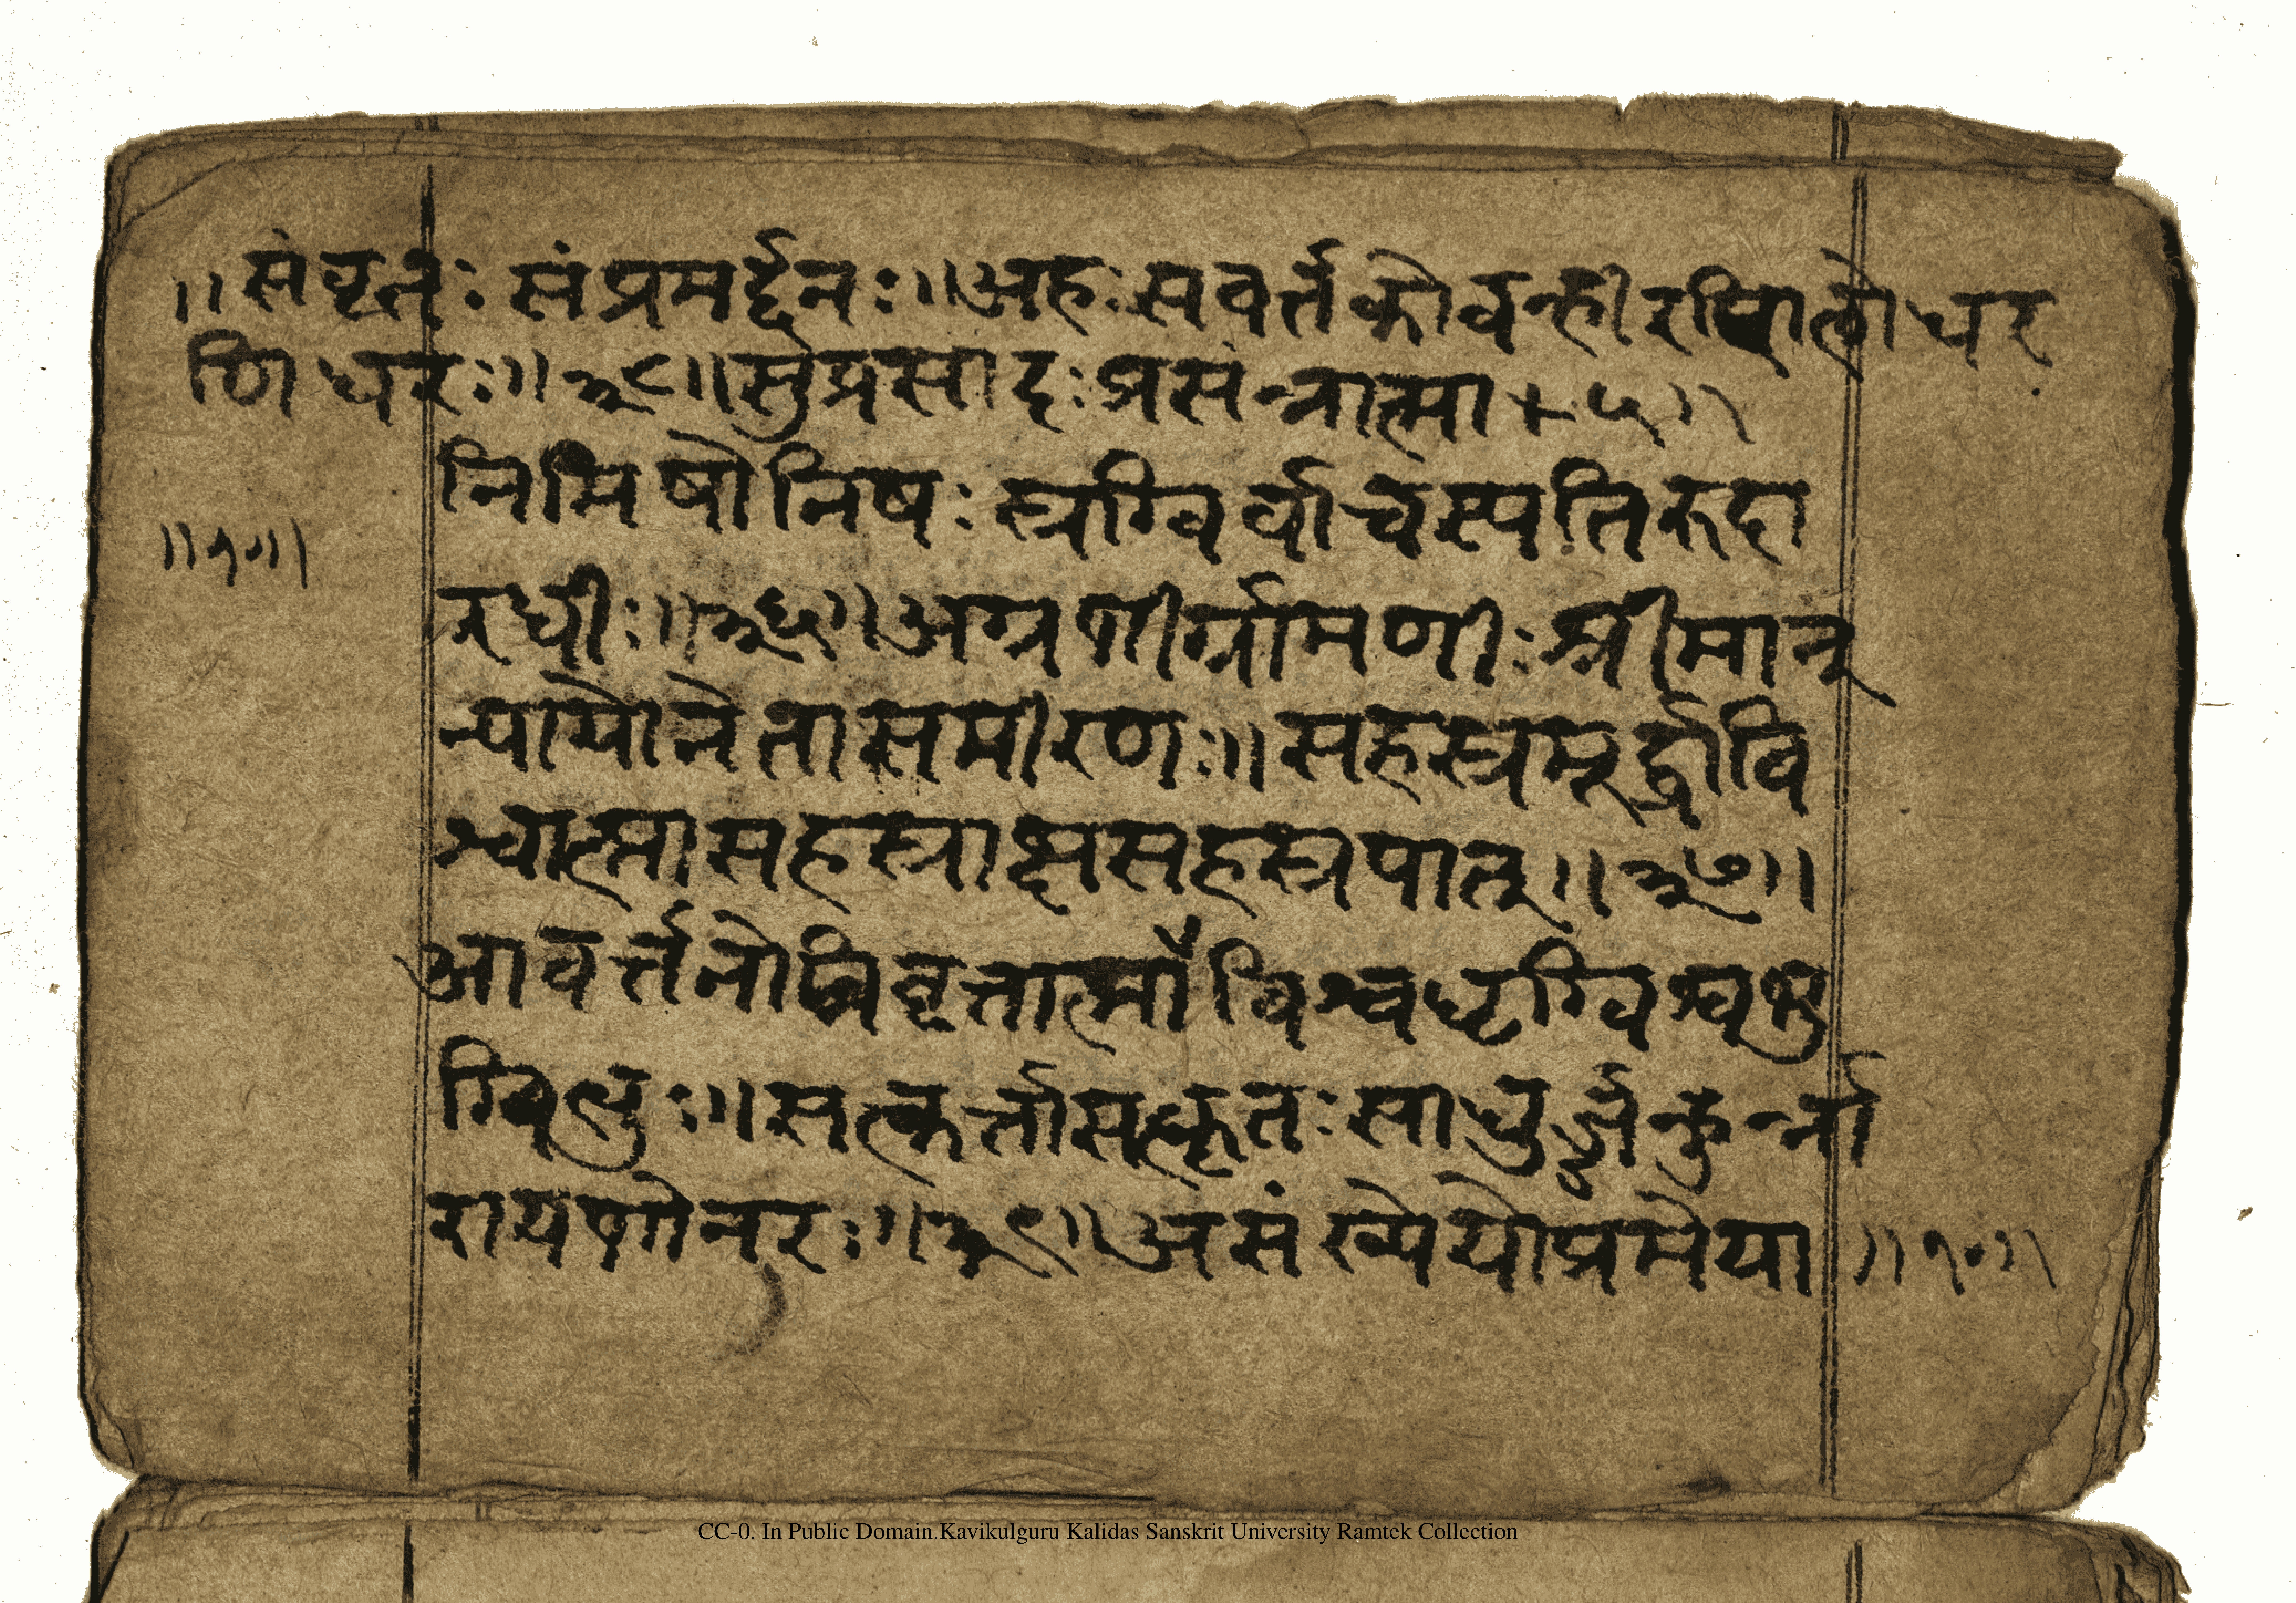 ॥संवृतः संप्रमर्द्दनः॥अहःसवर्तकोवन्हीरनिलोधर
णिधरः॥३८॥सुप्रसादःप्रसंन्नात्मा+५॥
निमिषोनिषःस्त्रग्विर्वाचस्पतिरुदा
॥१०॥
रधीः॥३६॥अग्रणीर्ग्रामणीःश्रीमान्
न्यायोनेतासमीरणः॥सहस्त्रमूर्द्धावि
श्वात्मासहस्त्राक्षसहस्त्रपात्॥३७॥
आवर्त्तनोनिवृत्तात्माँविश्वधृग्विश्वभु
ग्विभुः॥सत्कर्त्तासत्कृतःसाधुर्ज्जन्हुर्न्ना
रायणोनरः॥३९॥असंख्येयोप्रमेया॥१०॥
CC-0. In Public Domain.Kavikulguru Kalidas Sanskrit University Ramtek Collection